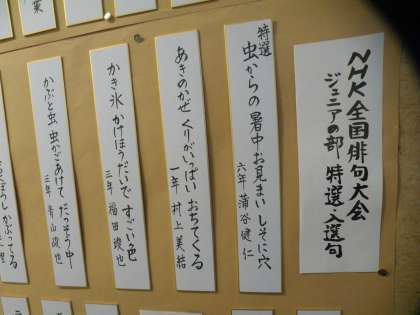 NHK全国俳句大会
ジュニアの部 特選・入選句
特選
虫からの 暑中お見まい しそに穴
六年 蒲谷健仁
あきのかぜ くりがいっぱい おちてくる
一年 村上美結
かき氷 かけほうだいで すごい色
三年 福田
かぶと虫 虫かごあけて だっそう中
三年 青山俊也
かぶってる